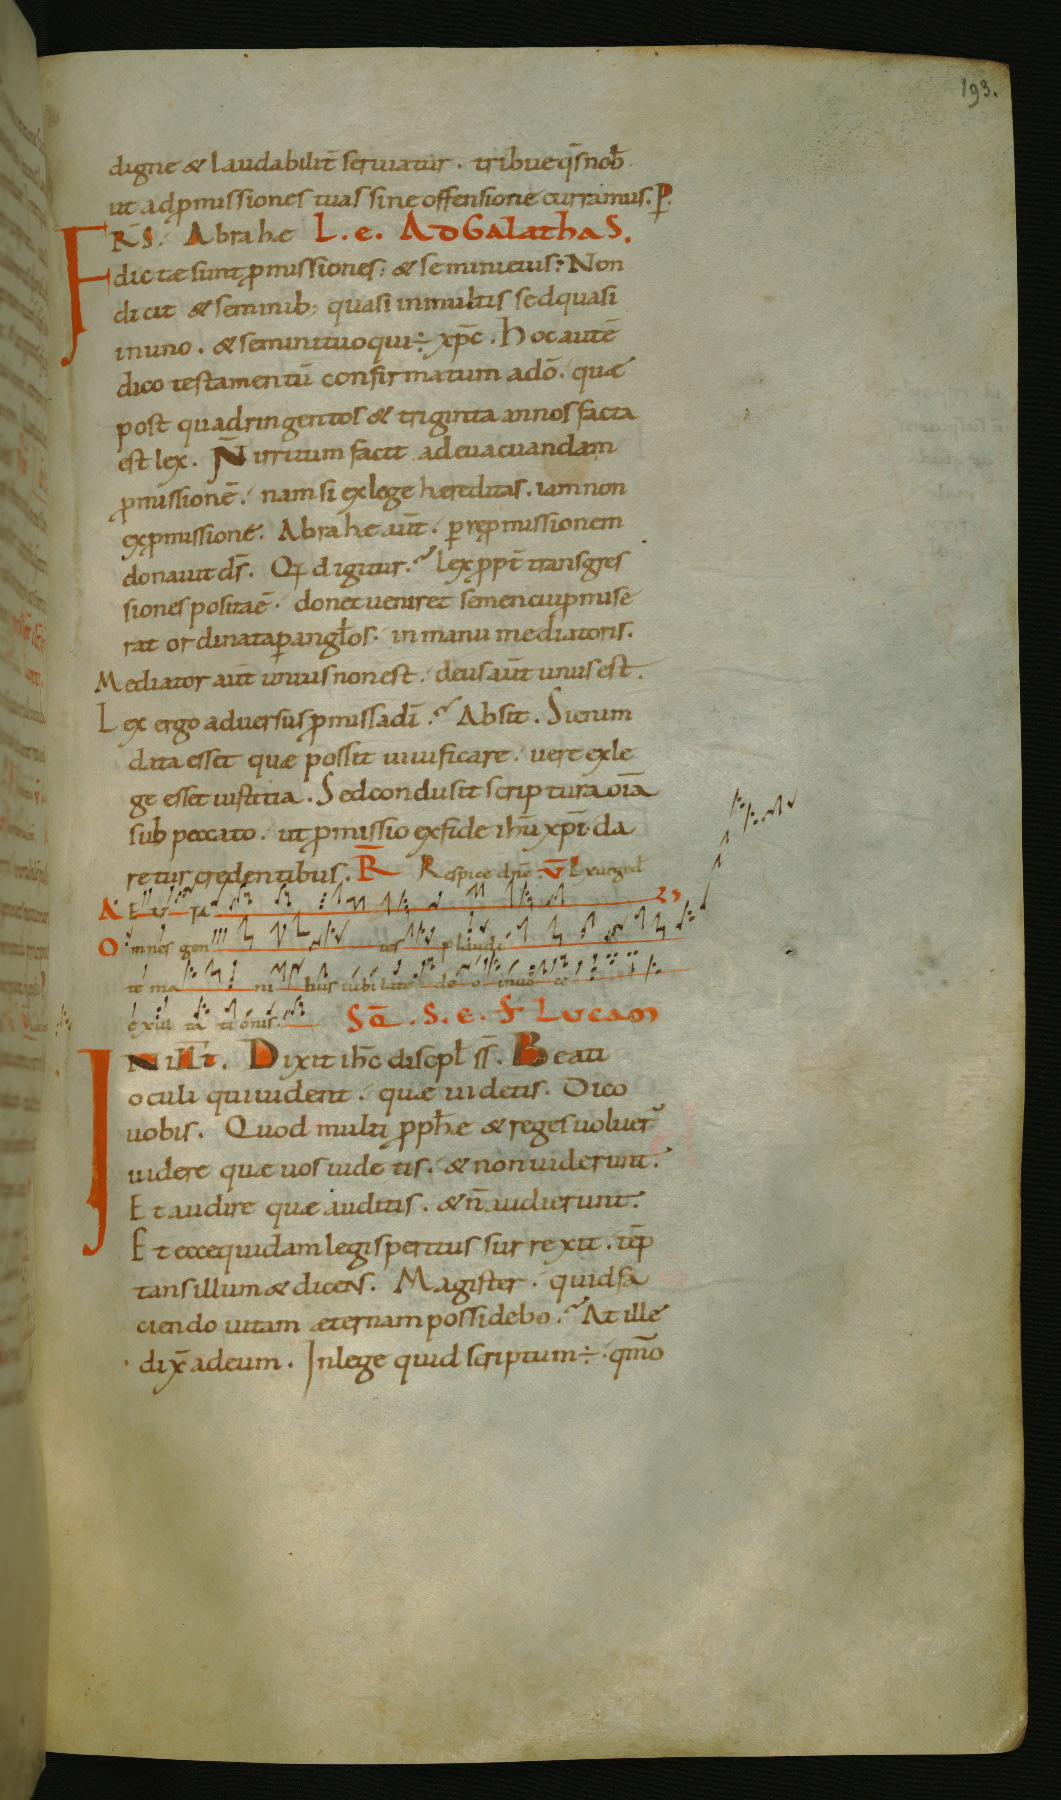 193.
digne & laudabilit̄ seruiatur. tribue q̄s nob̄.
ut ad p̱missiones tuas sine offensione curramus. P̱.
FRS̄. Abrahæ L. e. AD GALathaS.
dictæ sunt p̱missiones. & semini eius. Non
dicit & seminib; quasi in multis sed quasi
in uno. & semini tuo qui ÷ xp̄c. hoc autē
dico testamentū confirmatum a dō. quæ
post quadringentos & triginta annos facta
est lex. N̄ irritum facit ad euacuandam
p̱missionē. nam si ex lege hereditas. iam non
ex p̱missione. Abrahe aut̄. per rep̱missionem
donauit ds̄. Qd igitur. lex p̱pt̄ transgres
siones posita ē. donec ueniret semen cui p̱mise
rat ordinata p̱ angl̄os. in manu mediatoris.
Mediator aut̄ unius non est. deus aut̄ unus est.
Lex ergo aduersus p̱missa dī. Absit. Si enim
data esset quæ possit uiuificare. uere ex le
ge esset iustitia. Sed conclusit scriptura oīa
sub peccato. ut p̱missio ex fide ihū xp̄i da
retur credentibus. R̄ Respice dn̄e. V̄ Exurge d̄
A E V IA
Omnes gen tes plaudi
te ma ni bus iubilate deo in uo ce
exul ta tionis. SQ̄. S. e. S. LUCAM
IN ILL T̄. Dixit ihc̄ discipl̄ ss̄. Beati
oculi qui uident. quæ uidetis. Dico
uobis. Quod multi p̱ph̄e & reges uoluer̄
uidere quæ uos uidetis. & non uiderunt.
Et audire quæ auditis. & n̄ audierunt.
Et ecce quidam legisperitus surrexit. tēp
tans illum & dicens. Magister. quid fa
ciendo uitam æternam possidebo. At ille
dix̄ ad eum. In lege quid scriptum ÷. qm̄o